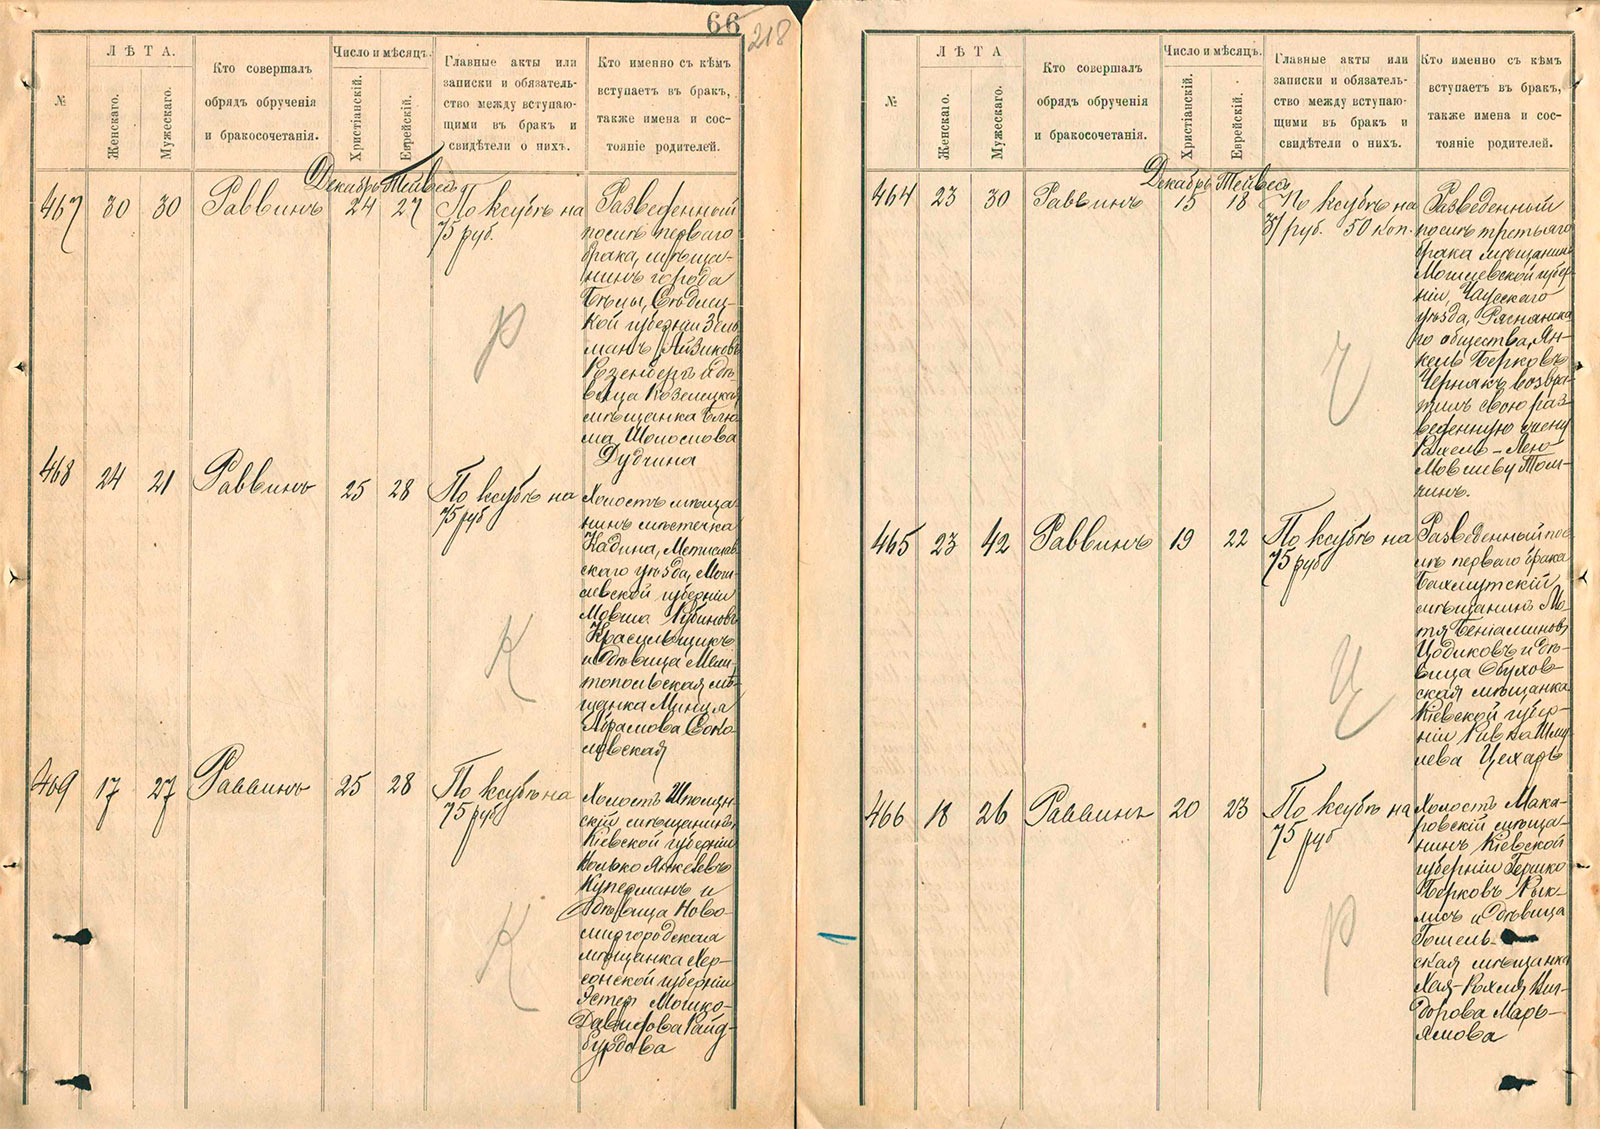 66
218
№
ЛѢТА.
Женскаго.
Мужескаго.
Кто совершалъ
обрядъ обрученія
и бракосочетанія.
Число и мѣсяцъ.
Христіанскій.
Еврейскій.
Главные акты или
записки и обязатель-
ство между вступаю-
щими въ бракъ и
свидѣтели о нихъ.
Кто именно съ кѣмъ
вступаетъ въ бракъ,
также имена и сос-
тояніе родителей.
467
30
30
Раввинъ
Декабрь
24
Тейвесъ
27
По ксубѣ на
75 руб.
Р
Разведенный
послѣ перваго
брака, мѣща-
нинъ города
Бѣлы, Сѣдлец-
кой губерніи Зель-
манъ Айзиковъ
Розенбергъ и дѣ-
вица Козелецкая
мѣщанка Блю-
ма Шоломова
Дудчина
468
24
21
Раввинъ
25
28
По ксубѣ на
75 руб
К
Холостъ мѣща-
нинъ мѣстечка
Кадина, Мстислав-
скаго уѣзда, Моги-
левской губерніи
Мовша Рубиновъ
Красильщикъ
и дѣвица Мели-
топольская мѣ-
щанка Минця
Абрамова Соко-
ловская
469
17
27
Раввинъ
25
28
По ксубѣ на
75 руб
К
Холостъ Шполян-
скій мѣщанинъ,
Кіевской губерніи
Волько Янкелевъ
Куперманъ и
дѣвица Ново-
миргородская
мѣщанка Хер-
сонской губерніи
Эстер Мошко-
Давидова Райд-
бурдова
№
ЛѢТА
Женскаго.
Мужескаго.
Кто совершалъ
обрядъ обрученія
и бракосочетанія.
Число и мѣсяцъ.
Христіанскій.
Еврейскій.
Главные акты или
записки и обязатель-
ство между вступаю-
щими въ бракъ и
свидѣтели о нихъ.
Кто именно съ кѣмъ
вступаетъ въ бракъ,
также имена и сос-
тояніе родителей.
464
23
30
Раввинъ
Декабрь
15
Тейвесъ
18
По ксубѣ на
37 руб. 50 коп.
Ч
Разведенный
послѣ третьяго
брака мѣщанинъ
Могилевской губер-
ніи, Чаусскаго
уѣзда, Рясненска-
го общества, Ян-
кель Берковъ
Чернякъ возвра-
тилъ свою раз-
веденную жену
Рахель-Лею
Мовшеву Толи-
чинъ.
465
23
42
Раввинъ
19
22
По ксубѣ на
75 руб
Ц
Разведенный пос-
лѣ перваго брака
Бахмутскій
мѣщанинъ Мо-
тя Беніаминовъ
Цодиковъ и дѣ-
вица Обухов-
ская мѣщанка
Кіевской губер-
ніи Ривка Шму-
лева Цехаръ
466
18
26
Раввинъ
20
23
По ксубѣ на
75 руб
Р
Холостъ Мака-
ровскій мѣща-
нинъ Кіевской
губерніи Гершко
Берковъ
и дѣвица
Гомель-
ская мѣщанка
Хая-Рохля Виг-
дорова Марь-
ямова